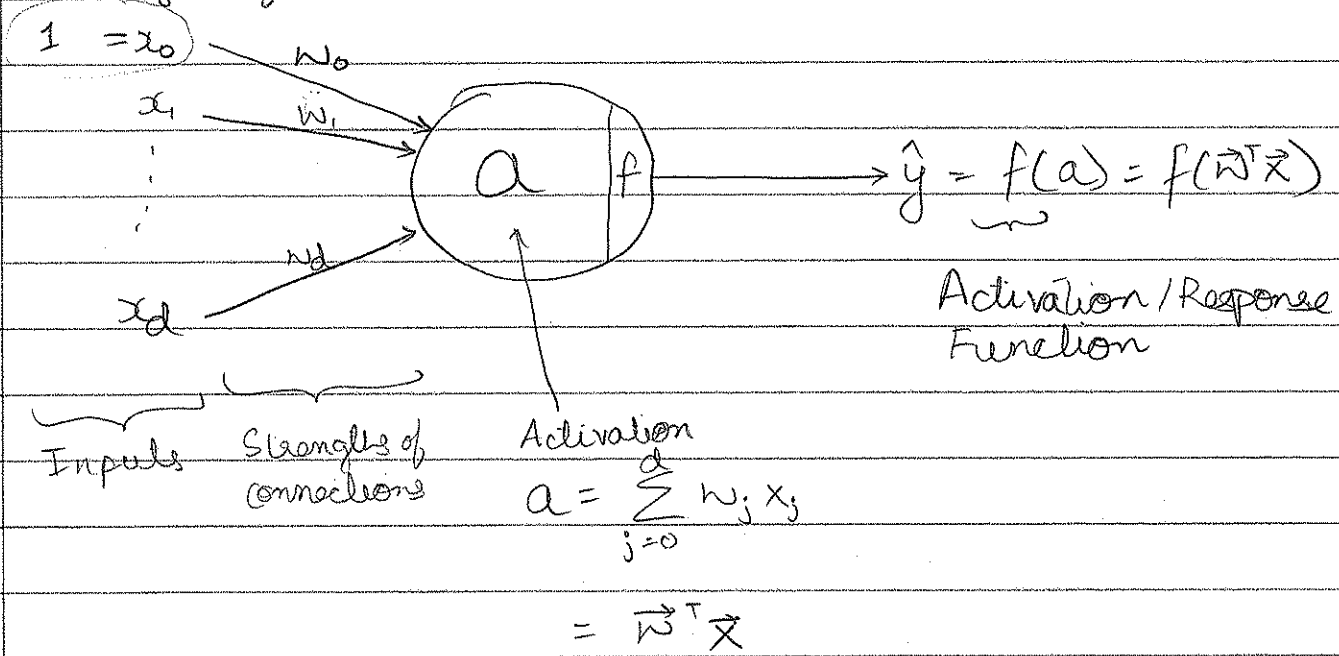 1 = x₀
w₀
x₁
w₁
a
f
ŷ = f(a) = f(w⃗ᵀx⃗)
wd
xd
Activation / Response
Function
Inputs
Strengths of
connections
Activation
a = Σ_{j=0}^{d} wⱼ xⱼ
= w⃗ᵀ x⃗